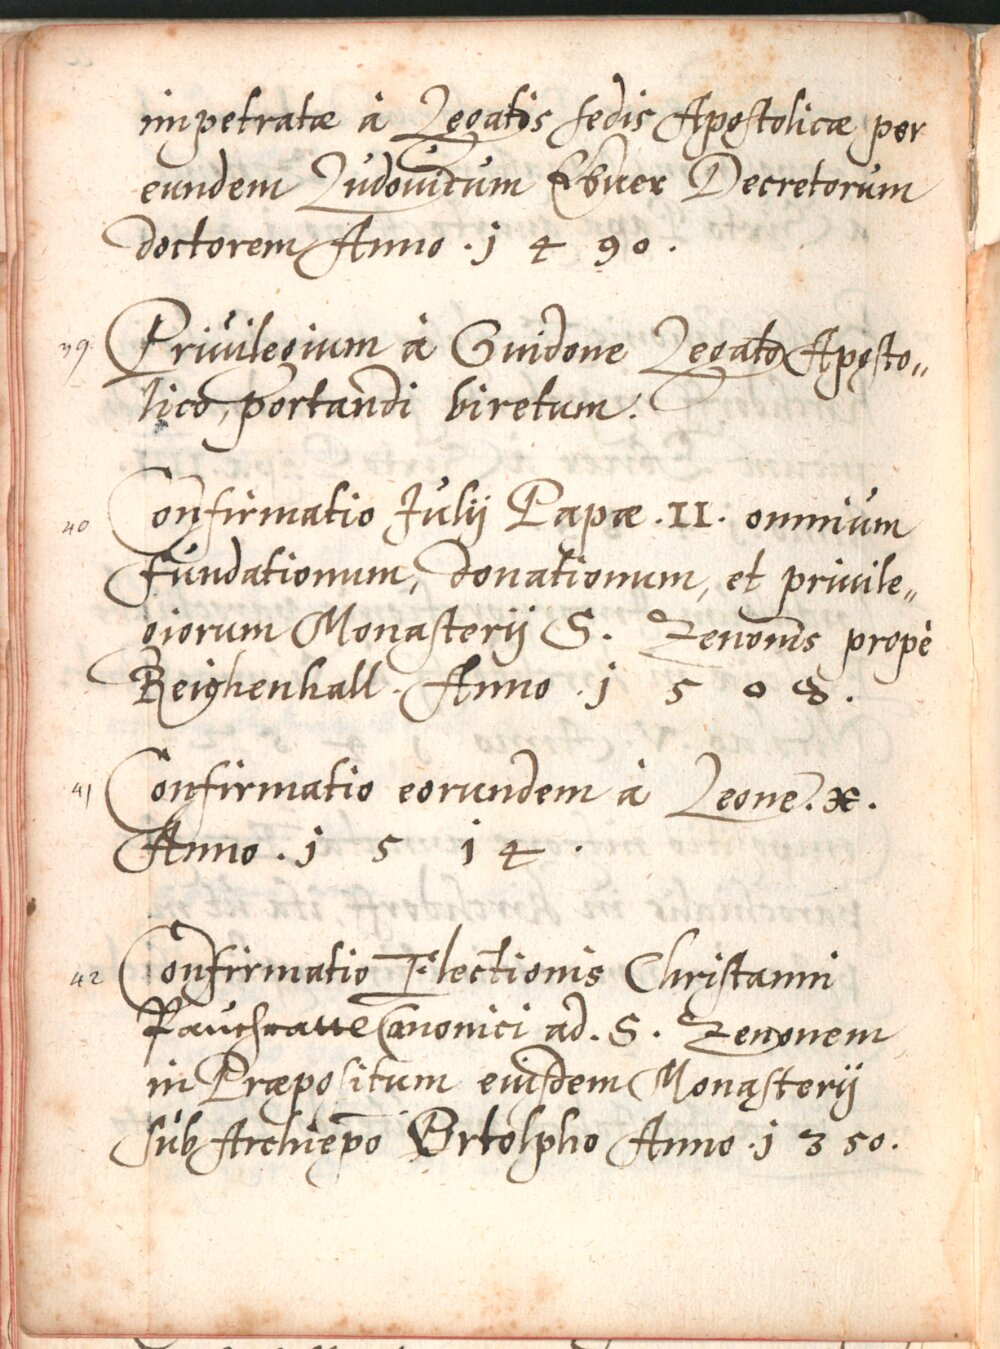 impetratæ à Legatis sedis Apostolicæ per
eundem Ludouicum Ebner Decretorum
doctorem Anno . 1 4 90 .
39. Priuilegium à Guidone Legato Aposto„
lico, portandi biretum.
40 Confirmatio Julij Papæ .II. omnium
fundationum, donationum, et priuile„
giorum Monasterij S. Zenonis propè
Reighenhall . Anno . 1 5 0 8 .
41 Confirmatio eorundem à Leone . x .
Anno . 1 5 1 4 .
42 Confirmatio Electionis Christanni
Canonici ad . S . Zenonem
in Præpositum eiusdem Monasterij
sub Archiepo Ortolpho Anno . 1 3 50 .